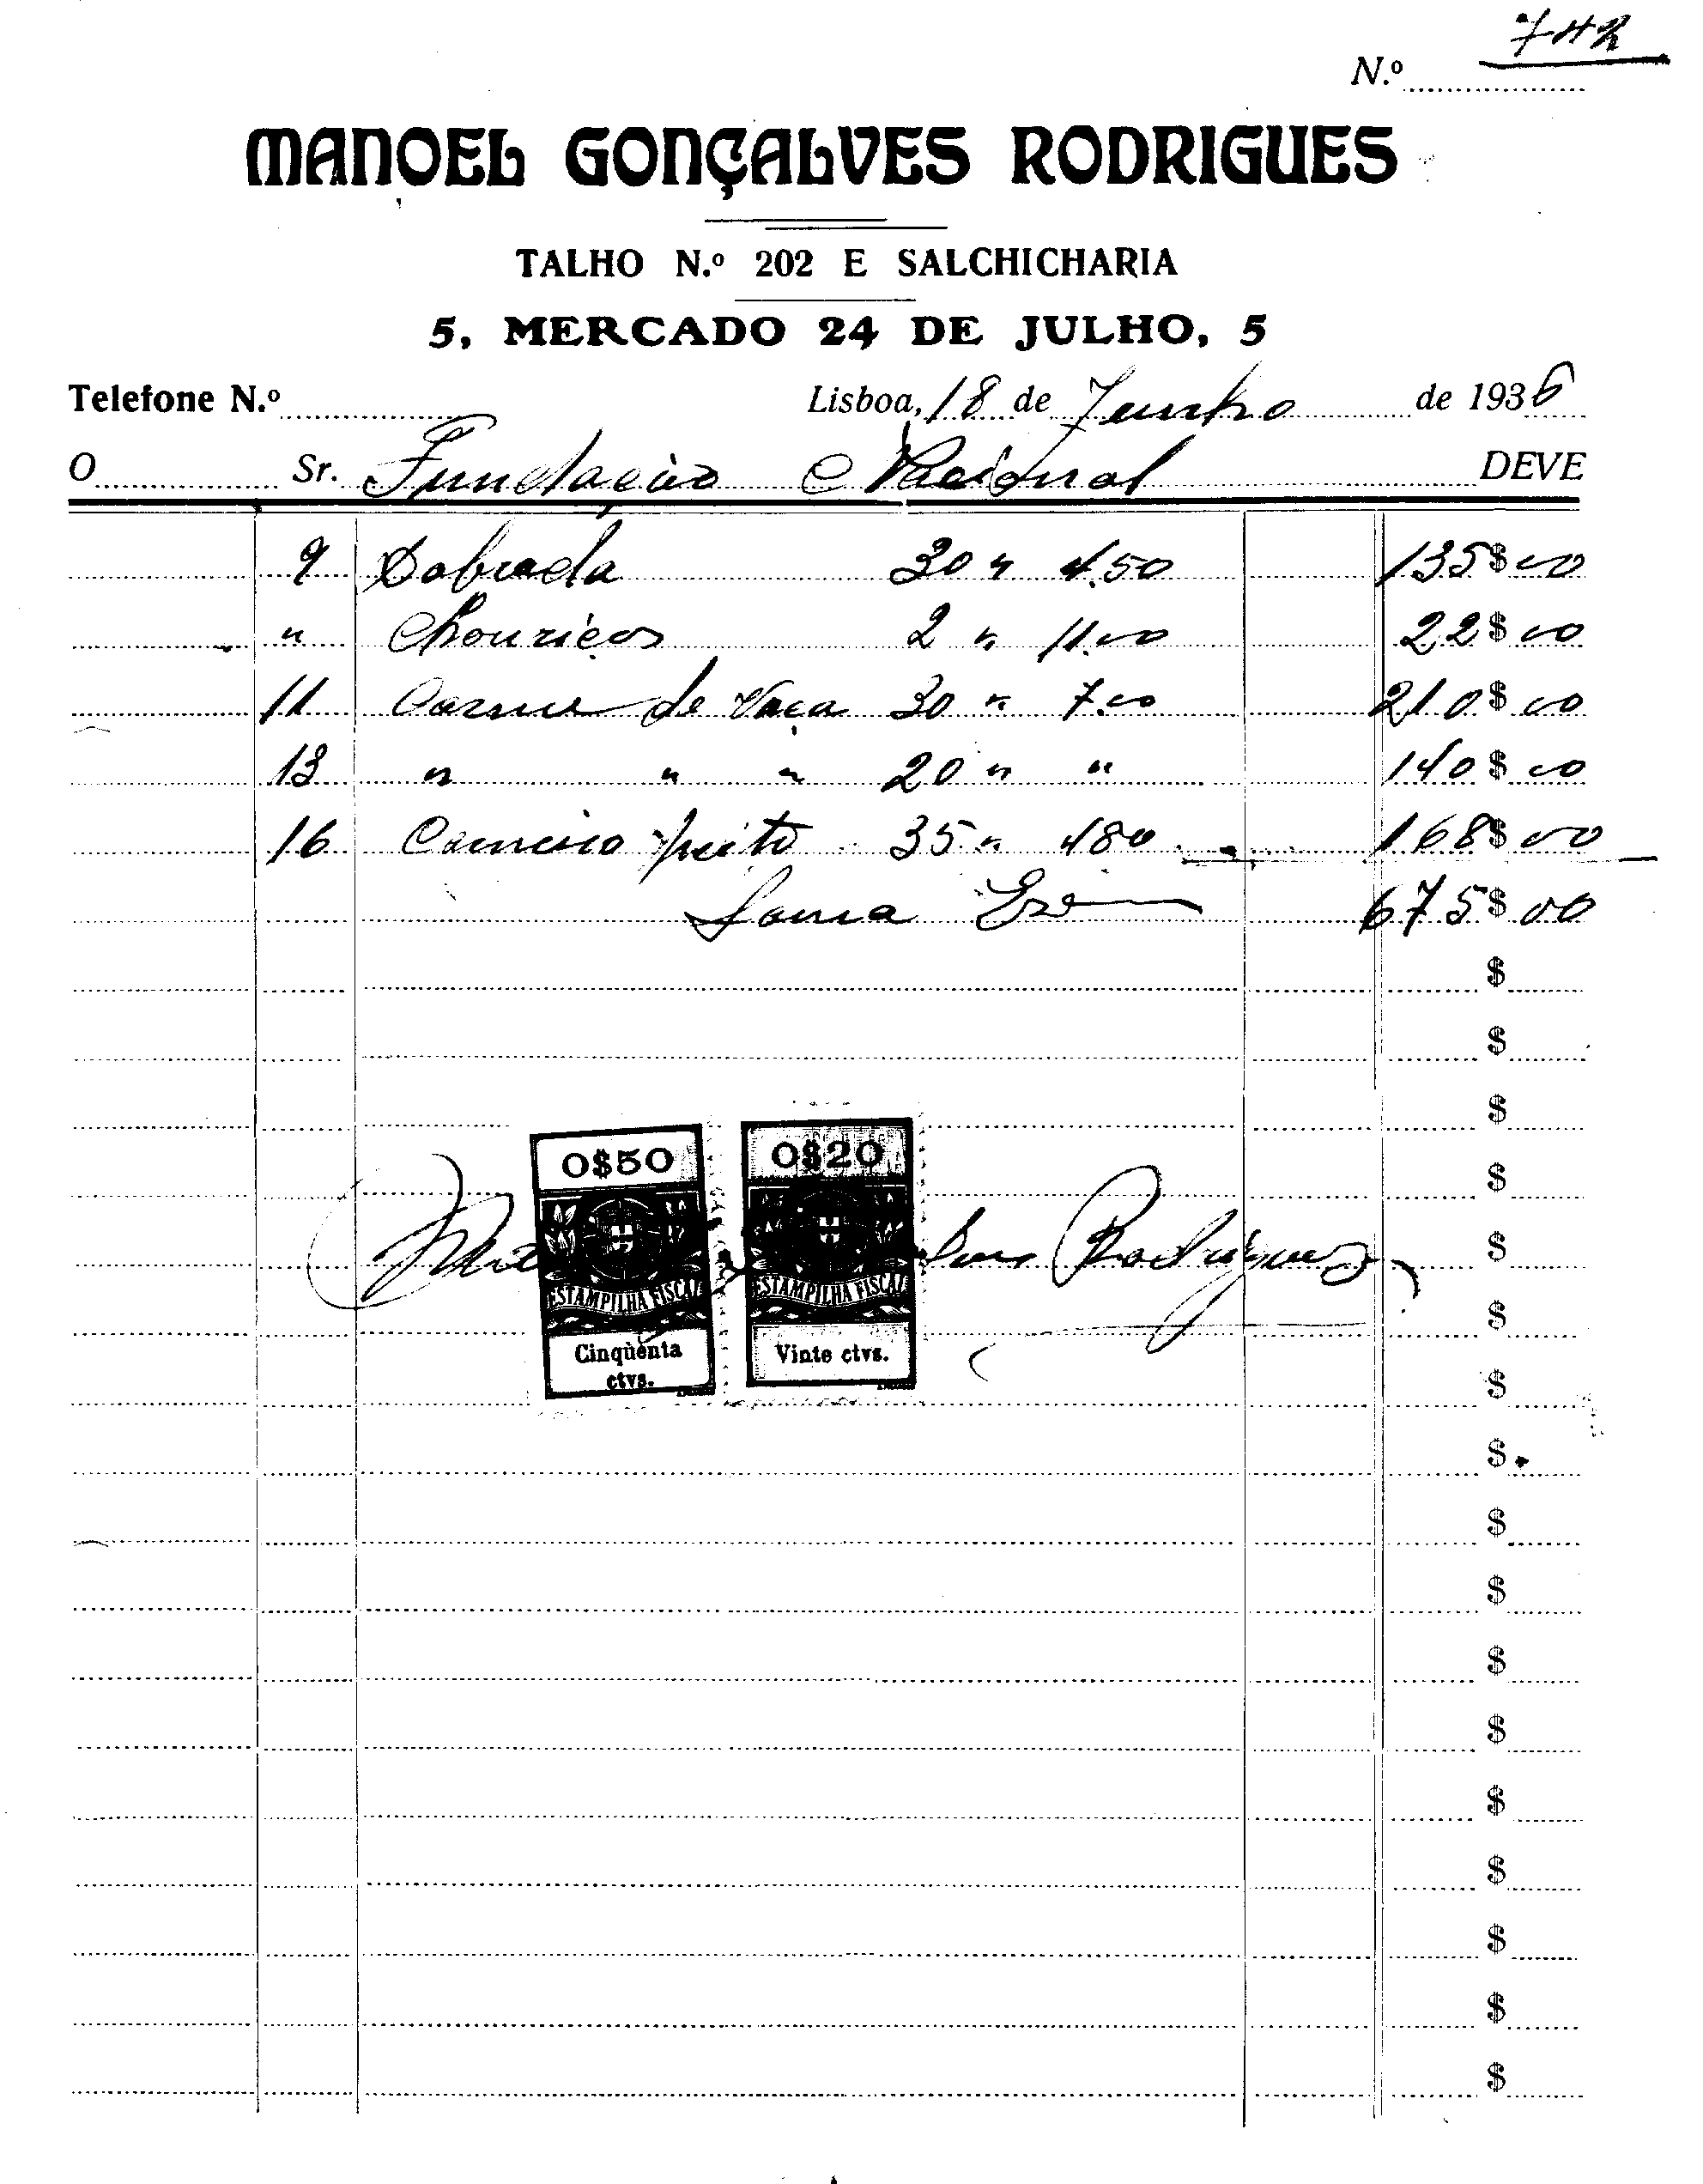 N.º 742
MANOEL GONÇALVES RODRIGUES
TALHO N.º 202 E SALCHICHARIA
5, MERCADO 24 DE JULHO, 5
Telefone N.º Lisboa, 18 de Junho de 1936
O Sr. Fundação Nacional DEVE
9 Dobrada 30 " 4.50 135$00
" Chouriços 2 " 11.00 22$00
11 Carne de Vaca 30 " 7.00 210$00
13 " " " 20 " " 140$00
16 Carneiro peito 35 " 480 168$00
Soma Esc 675$00
$
$
$
O$50 O$20
$
Rodrigues $
ESTAMPILHA FISCAL ESTAMPILHA FISCAL
$
Cinqùenta Vinte ctvs.
ctvs.
$
$
$
$
$
$
$
$
$
$
$